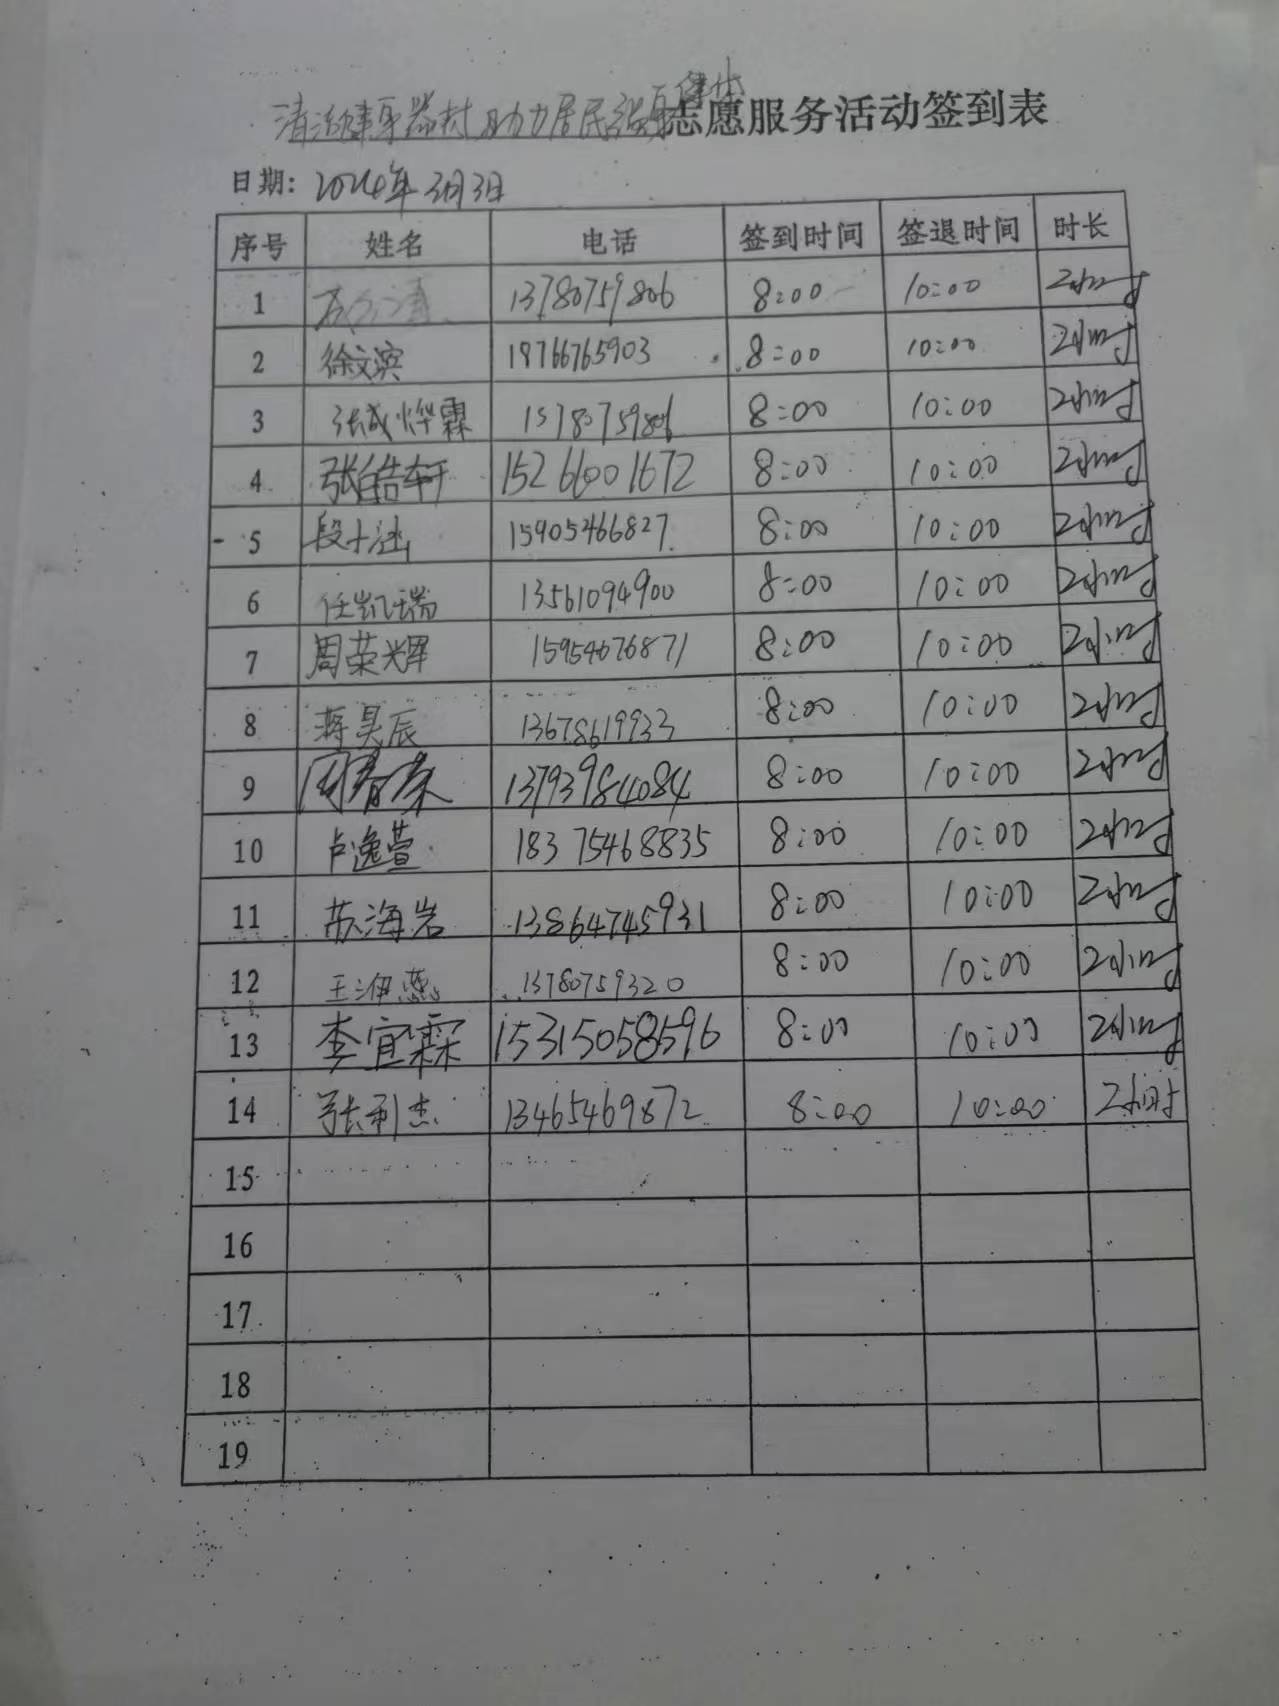 清洁健身器材助力居民强身健体志愿服务活动签到表
日期：2024年3月3日
序号 姓名 电话 签到时间 签退时间 时长
1 13780759806 8:00 10:00 2小时
2 徐文滨 18766765903 8:00 10:00 2小时
3 张成烨霖 15780759806 8:00 10:00 2小时
4 张皓轩 15266001672 8:00 10:00 2小时
5 段十涵 15905466827 8:00 10:00 2小时
6 任凯瑞 13561094900 8:00 10:00 2小时
7 周荣辉 15954676871 8:00 10:00 2小时
8 蒋昊辰 13678619933 8:00 10:00 2小时
9 周春 13793984084 8:00 10:00 2小时
10 卢逸萱 18375468835 8:00 10:00 2小时
11 苏海岩 13864745931 8:00 10:00 2小时
12 王洢 13780759320 8:00 10:00 2小时
13 李宜霖 15315058596 8:00 10:00 2小时
14 张利杰 13465469872 8:00 10:00 2小时
15
16
17
18
19